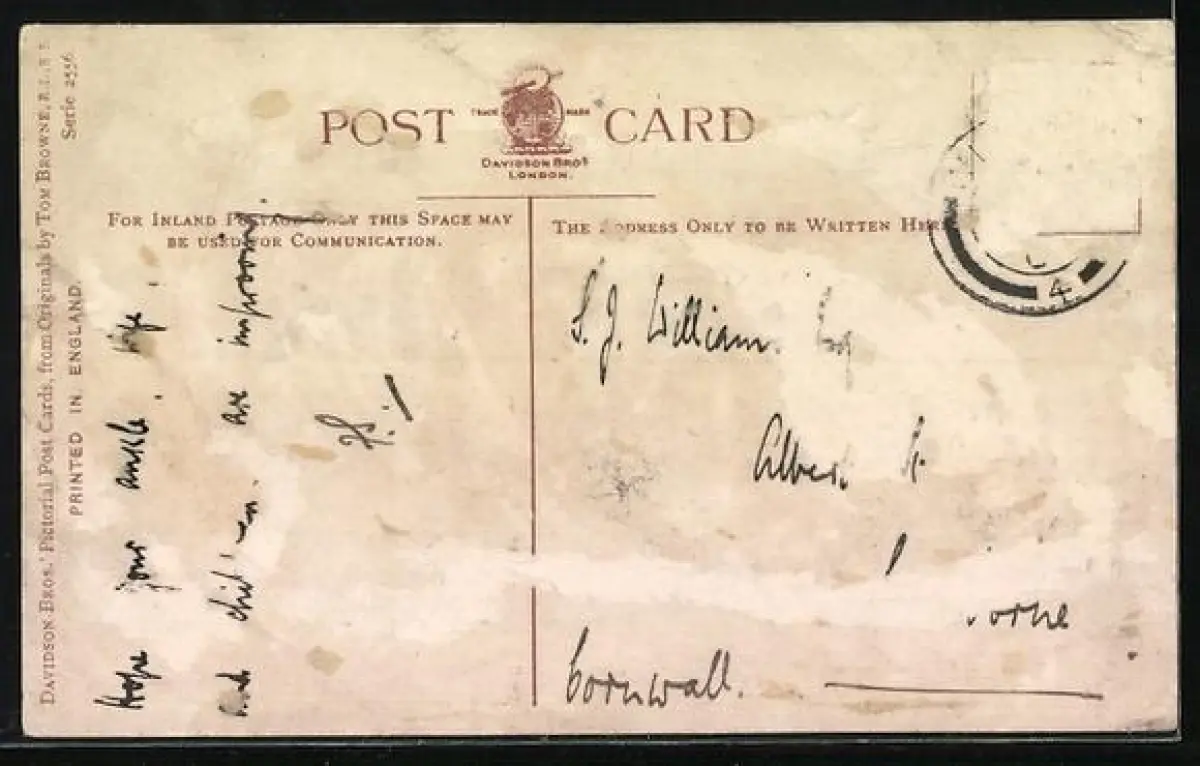 DAVIDSON BROS.' Pictorial Post Cards, from Originals by TOM BROWNE, R.I., R.B.A. Serie 2556
PRINTED IN ENGLAND.
POST CARD
TRADE MARK
DAVIDSON BROS
LONDON.
FOR INLAND POSTAGE ONLY THIS SPACE MAY
BE USED FOR COMMUNICATION.
THE ADDRESS ONLY TO BE WRITTEN HERE
Hope your ankle, wife,
and children are improving.
S. J. William Esq
Albert
orne
Cornwall.
4